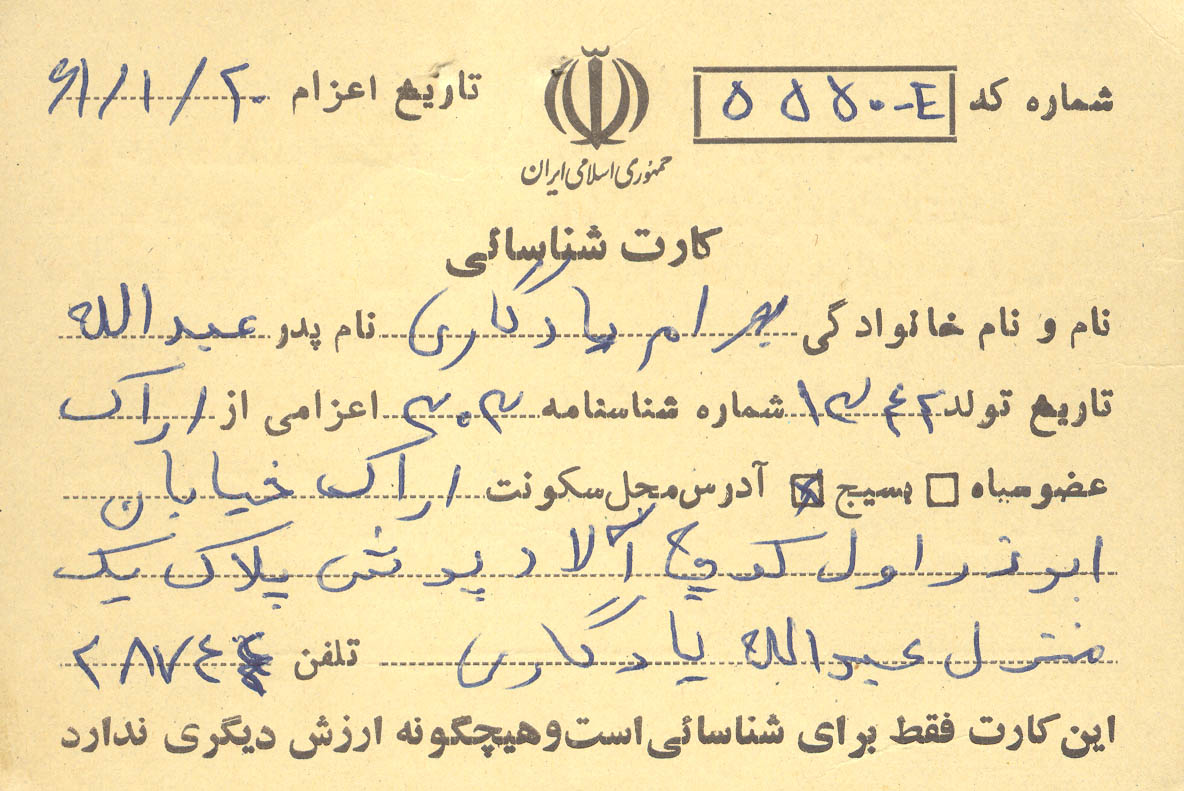 شماره کد ۵۵۵۰-E
تاریخ اعزام ۶۱/۱/۲۰
جمهوری اسلامی ایران
کارت شناسائی
نام و نام خانوادگی بهرام یادگاری نام پدر عبدالله
تاریخ تولد ۱۳۴۲ شماره شناسنامه ۳۰۳ اعزامی از اراک
عضو سپاه بسیج آدرس محل سکونت اراک خیابان
ابوذر اول کوچ آلادپوش پلاک یک
منزل عبدالله یادگاری تلفن ۲۸۷۴۴
این کارت فقط برای شناسائی است و هیچگونه ارزش دیگری ندارد